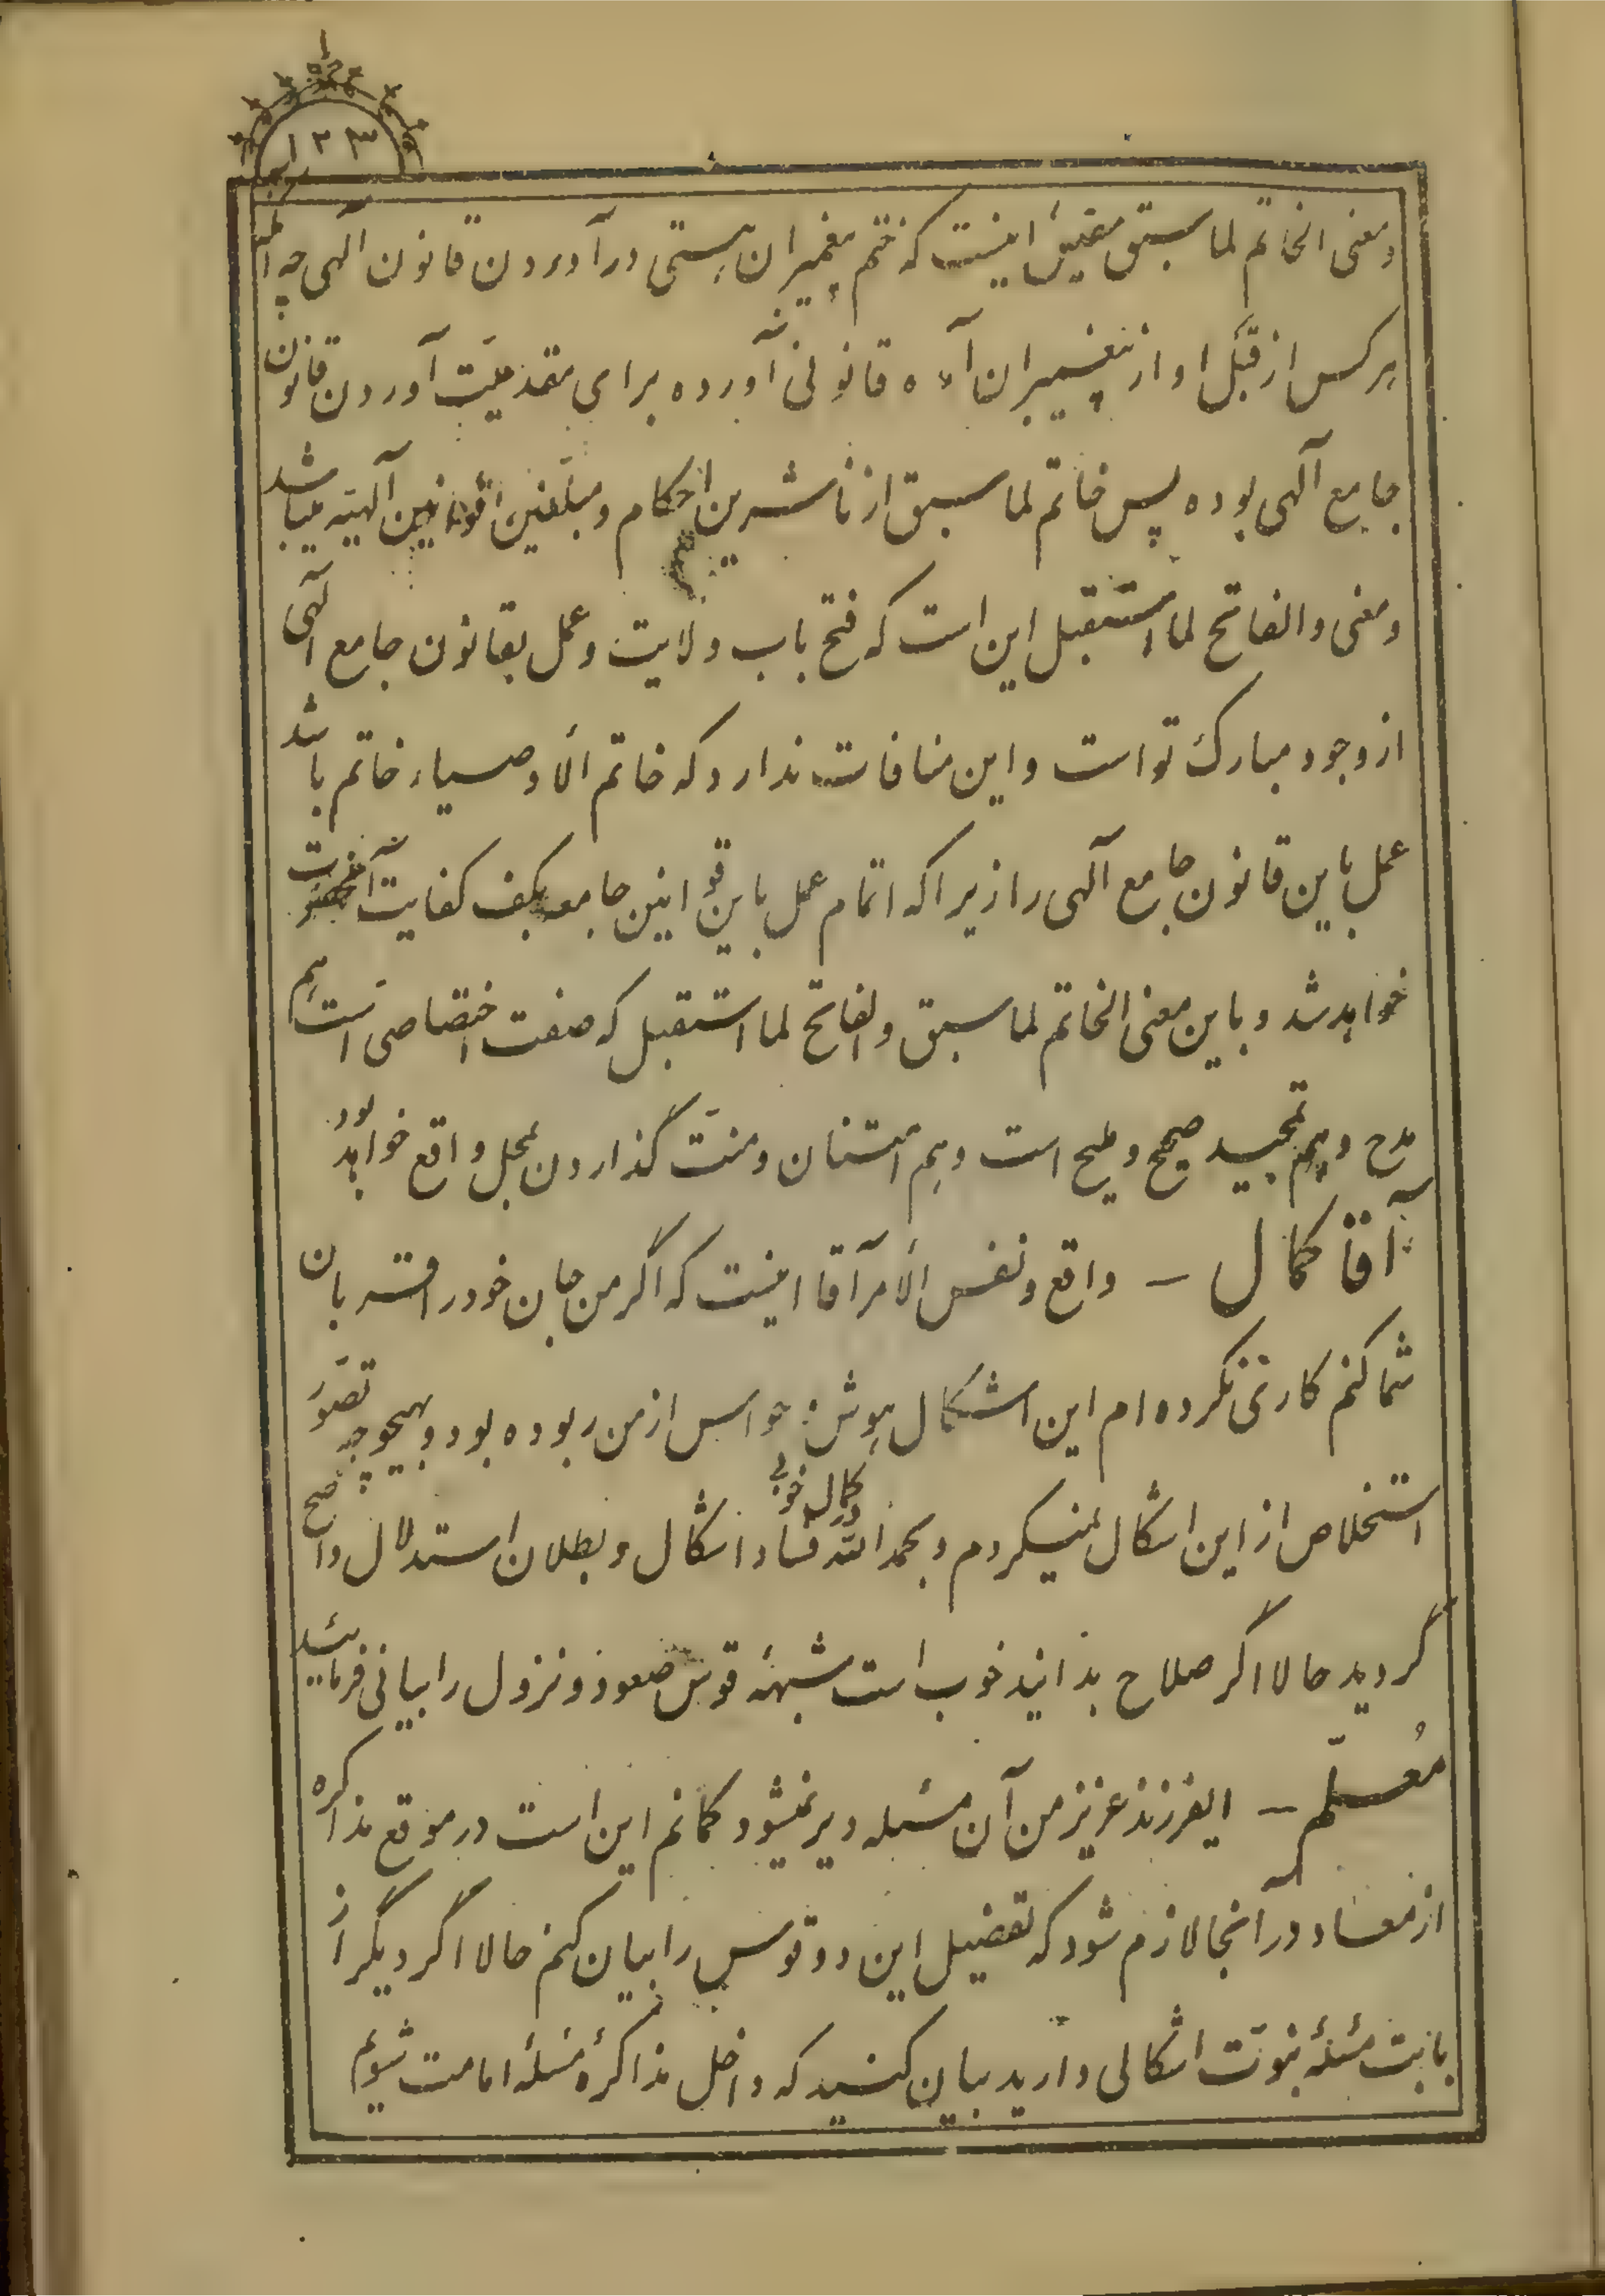 ۱۲۳
ومعنی الخاتم لما سبق مقتضی اینست که ختم پیغمبران هستی در آوردن قانون الهی چه
هر کس از قبل او از پیغمبران آمده قانونی آورده برای مقدمیّت آوردن قانون
جامع آلهی بوده پس خاتم لما سبق از ناشرین احکام و مبلّغین قوانین آلهیّه میباشد
ومعنی والفاتح لما استقبل این است که فتح باب ولایت وعمل بقانون جامع الهی
از وجود مبارک تو است و این منافات ندارد که خاتم الأوصیاء خاتم باشد
عمل باین قانون جامع آلهی را زیرا که اتمام عمل باین قوانین جامعه بکف کفایت آنحضرت
خواهد شد و باین معنی الخاتم لما سبق والفاتح لما استقبل که صفت اختصاصی است هم
مدح و هم تمجید صحیح وملیح است وهم امتنان ومنّت گذاردن بمحل واقع خواهد بود
آقا کمال – واقع ونفس الأمر آقا اینست که اگر من جان خود را قربان
شما کنم کاری نکرده ام این اشکال هوش و حواس از من ربوده بود و بهیچوجه تصوّر
استخلاص از این اشکال نمیکردم و بحمد الله در کمال خوبی فساد اشکال و بطلان استدلال واضح
گردید حالا اگر صلاح بدانید خوب است شبههٔ قوس صعود ونزول را بیانی فرمائید
مُعلّم – ایفرزند عزیز من آن مسئله دیر نمیشود گمانم این است در موقع مذاکره
از معاد در آنجا لازم شود که تفضیل این دو قوس را بیان کنم حالا اگر دیگر از
بابت مسئلهٔ نبوّت اشکالی دارید بیان کنید که داخل مذاکرهٔ مسئلهٔ امامت شویم